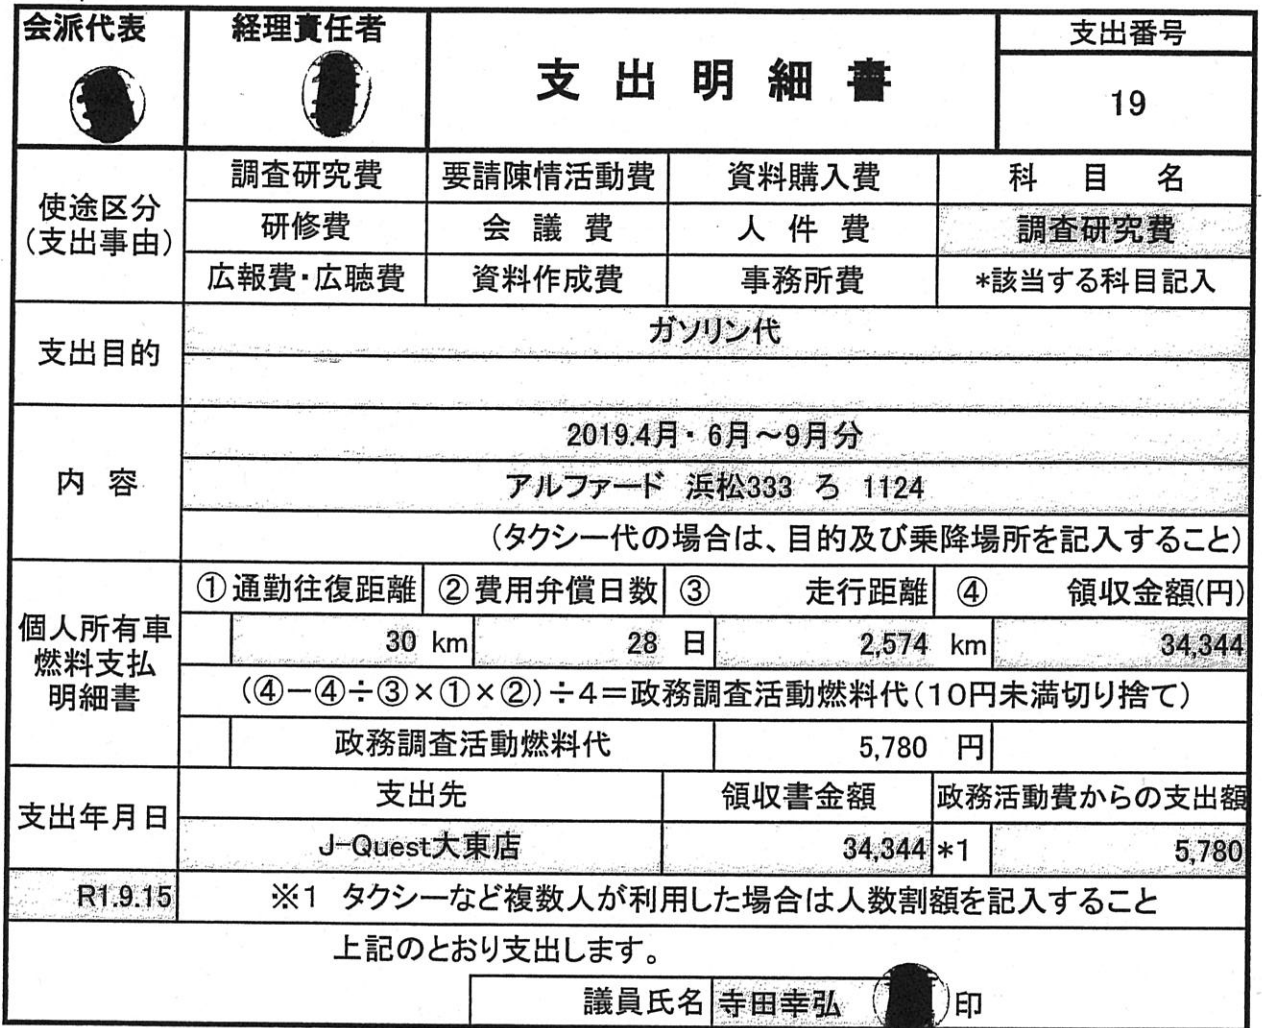 会派代表 経理責任者 支出明細書 支出番号
19
使途区分(支出事由) 調査研究費 要請陳情活動費 資料購入費 科目名
研修費 会議費 人件費 調査研究費
広報費・広聴費 資料作成費 事務所費 *該当する科目記入
支出目的 ガソリン代
内容 2019.4月・6月～9月分
アルファード 浜松333 ろ 1124
(タクシー代の場合は、目的及び乗降場所を記入すること)
個人所有車燃料支払明細書 ①通勤往復距離 ②費用弁償日数 ③ 走行距離 ④ 領収金額(円)
30 km 28 日 2,574 km 34,344
(④－④÷③×①×②)÷4＝政務調査活動燃料代(10円未満切り捨て)
政務調査活動燃料代 5,780 円
支出年月日 支出先 領収書金額 政務活動費からの支出額
J-Quest大東店 34,344 *1 5,780
R1.9.15 ※1 タクシーなど複数人が利用した場合は人数割額を記入すること
上記のとおり支出します。
議員氏名 寺田幸弘 印